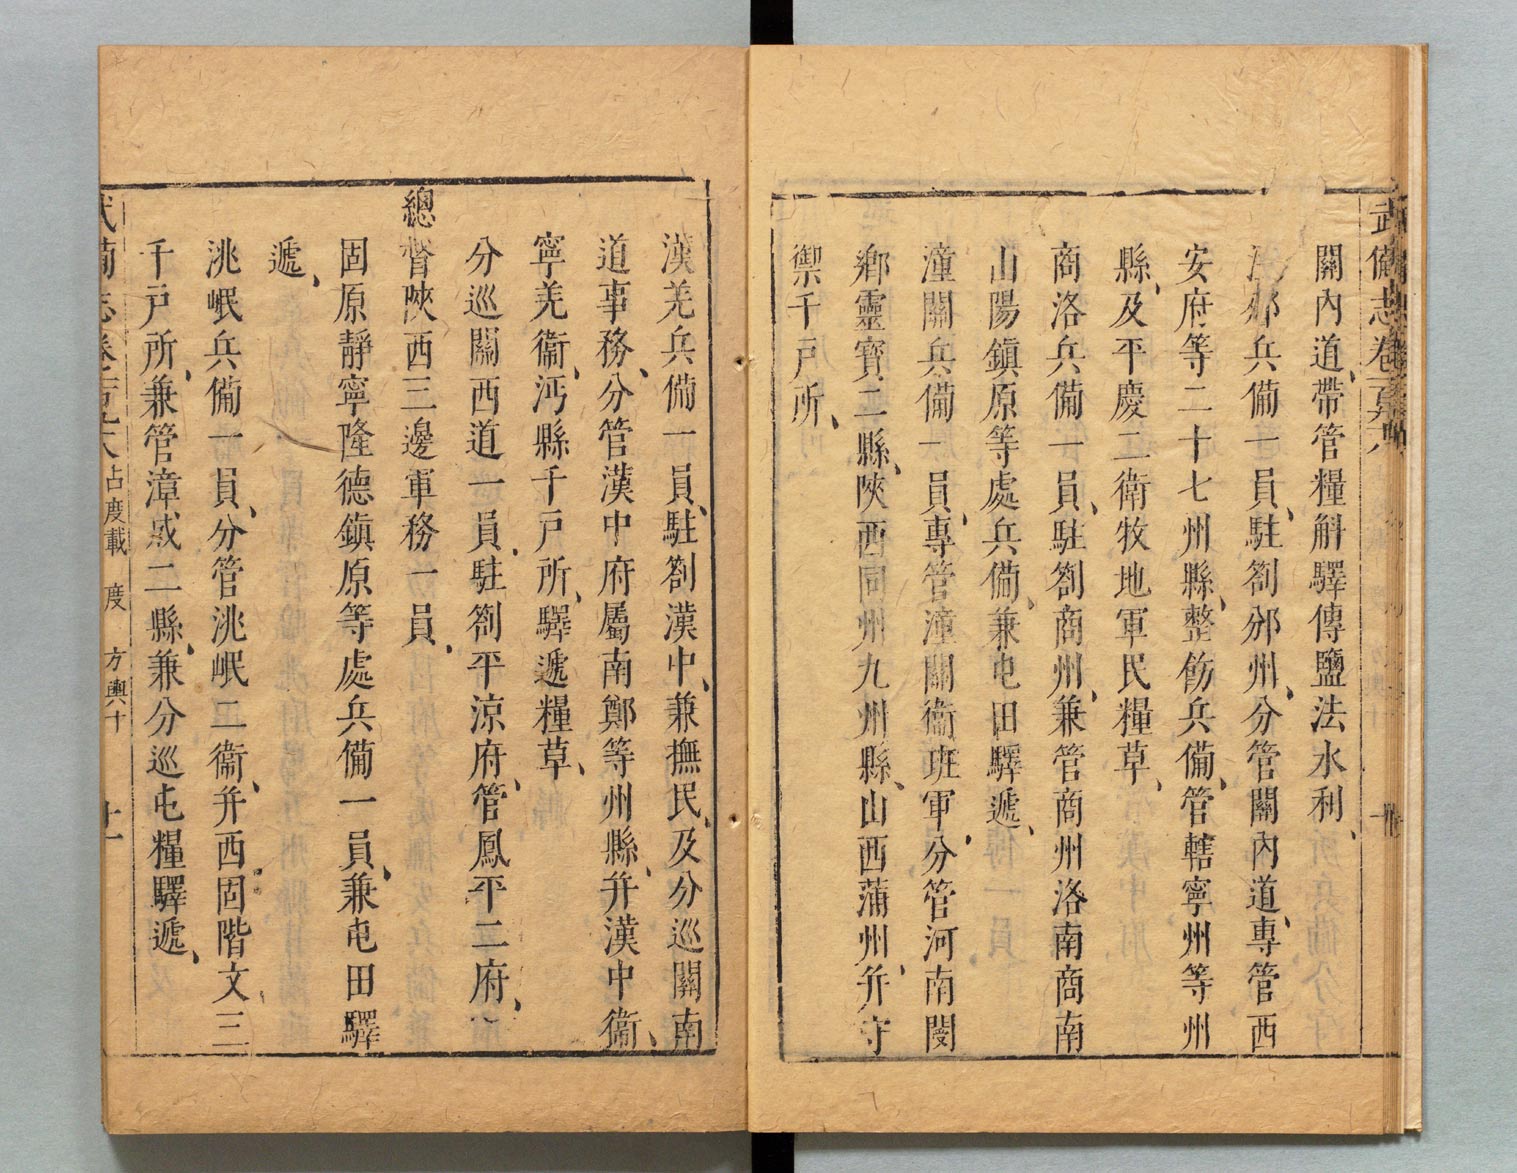 武備志卷
關內道、帶管糧斛驛傳鹽法水利、
邠兵備一員、駐劄邠州、分管關內道、專管西
安府等二十七州縣、整飭兵備、管轄寧州等州
縣、及平慶二衛牧地軍民糧草、
商洛兵備一員、駐劄商州、兼管商州洛南商南
山陽鎮原等處兵備、兼屯田驛遞、
潼關兵備一員、專管潼關衞班軍、分管河南閿
鄉靈寶二縣、陝西同州九州縣、山西蒲州、并守
禦千戶所、
漢羌兵備一員、駐劄漢中、兼撫民、及分巡關南
道事務、分管漢中府屬南鄭等州縣、并漢中衞、
寧羌衞、沔縣千戶所、驛遞糧草、
分巡關西道一員、駐劄平涼府、管鳳平二府、
總督陝西三邊軍務一員、
固原靜寧隆德鎮原等處兵備一員、兼屯田驛
遞、
洮岷兵備一員、分管洮岷二衞、并西固階文三
千戶所、兼管漳戎二縣、兼分巡屯糧驛遞、
武備志卷 占度載 度 方輿十 十一